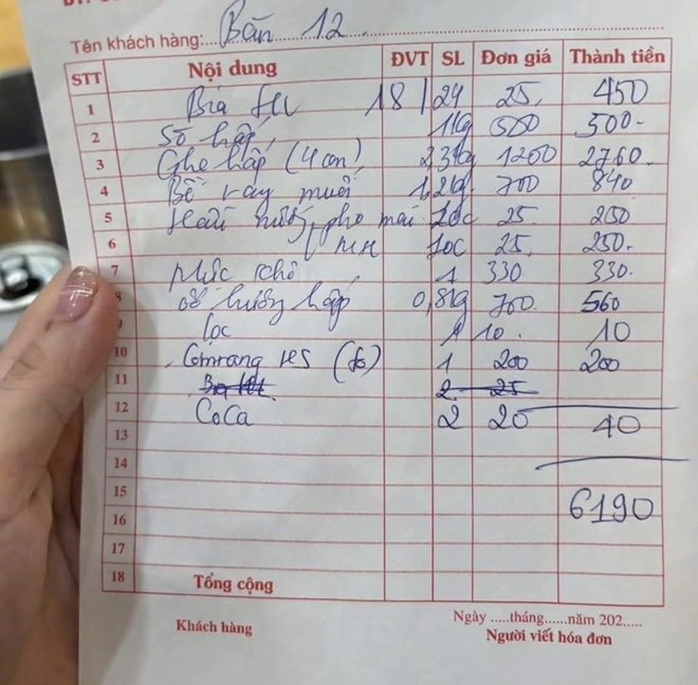 Tên khách hàng: Bàn 12
STT Nội dung ĐVT SL Đơn giá Thành tiền
1 Bia 18/24 25, 450
2 Sò hấp 1kg 500 500-
3 Ghẹ hấp (4 con) 2,3kg 1200 2760.
4 Bề rang muối 1,2kg 700 840
5 Hàu nướng pho mai 10c 25 250
6 MH 10c 25. 250.
7 Mực khô 1 330 330.
8 ốc hương hấp 0,8kg 700 560
9 lạc 1 10. 10
10 Comrang (to) 1 200 200
11 2 25
12 CoCa 2 20 40
13
14
15 6190
16
17
18 Tổng cộng
Ngày .....tháng......năm 202.....
Khách hàng Người viết hóa đơn